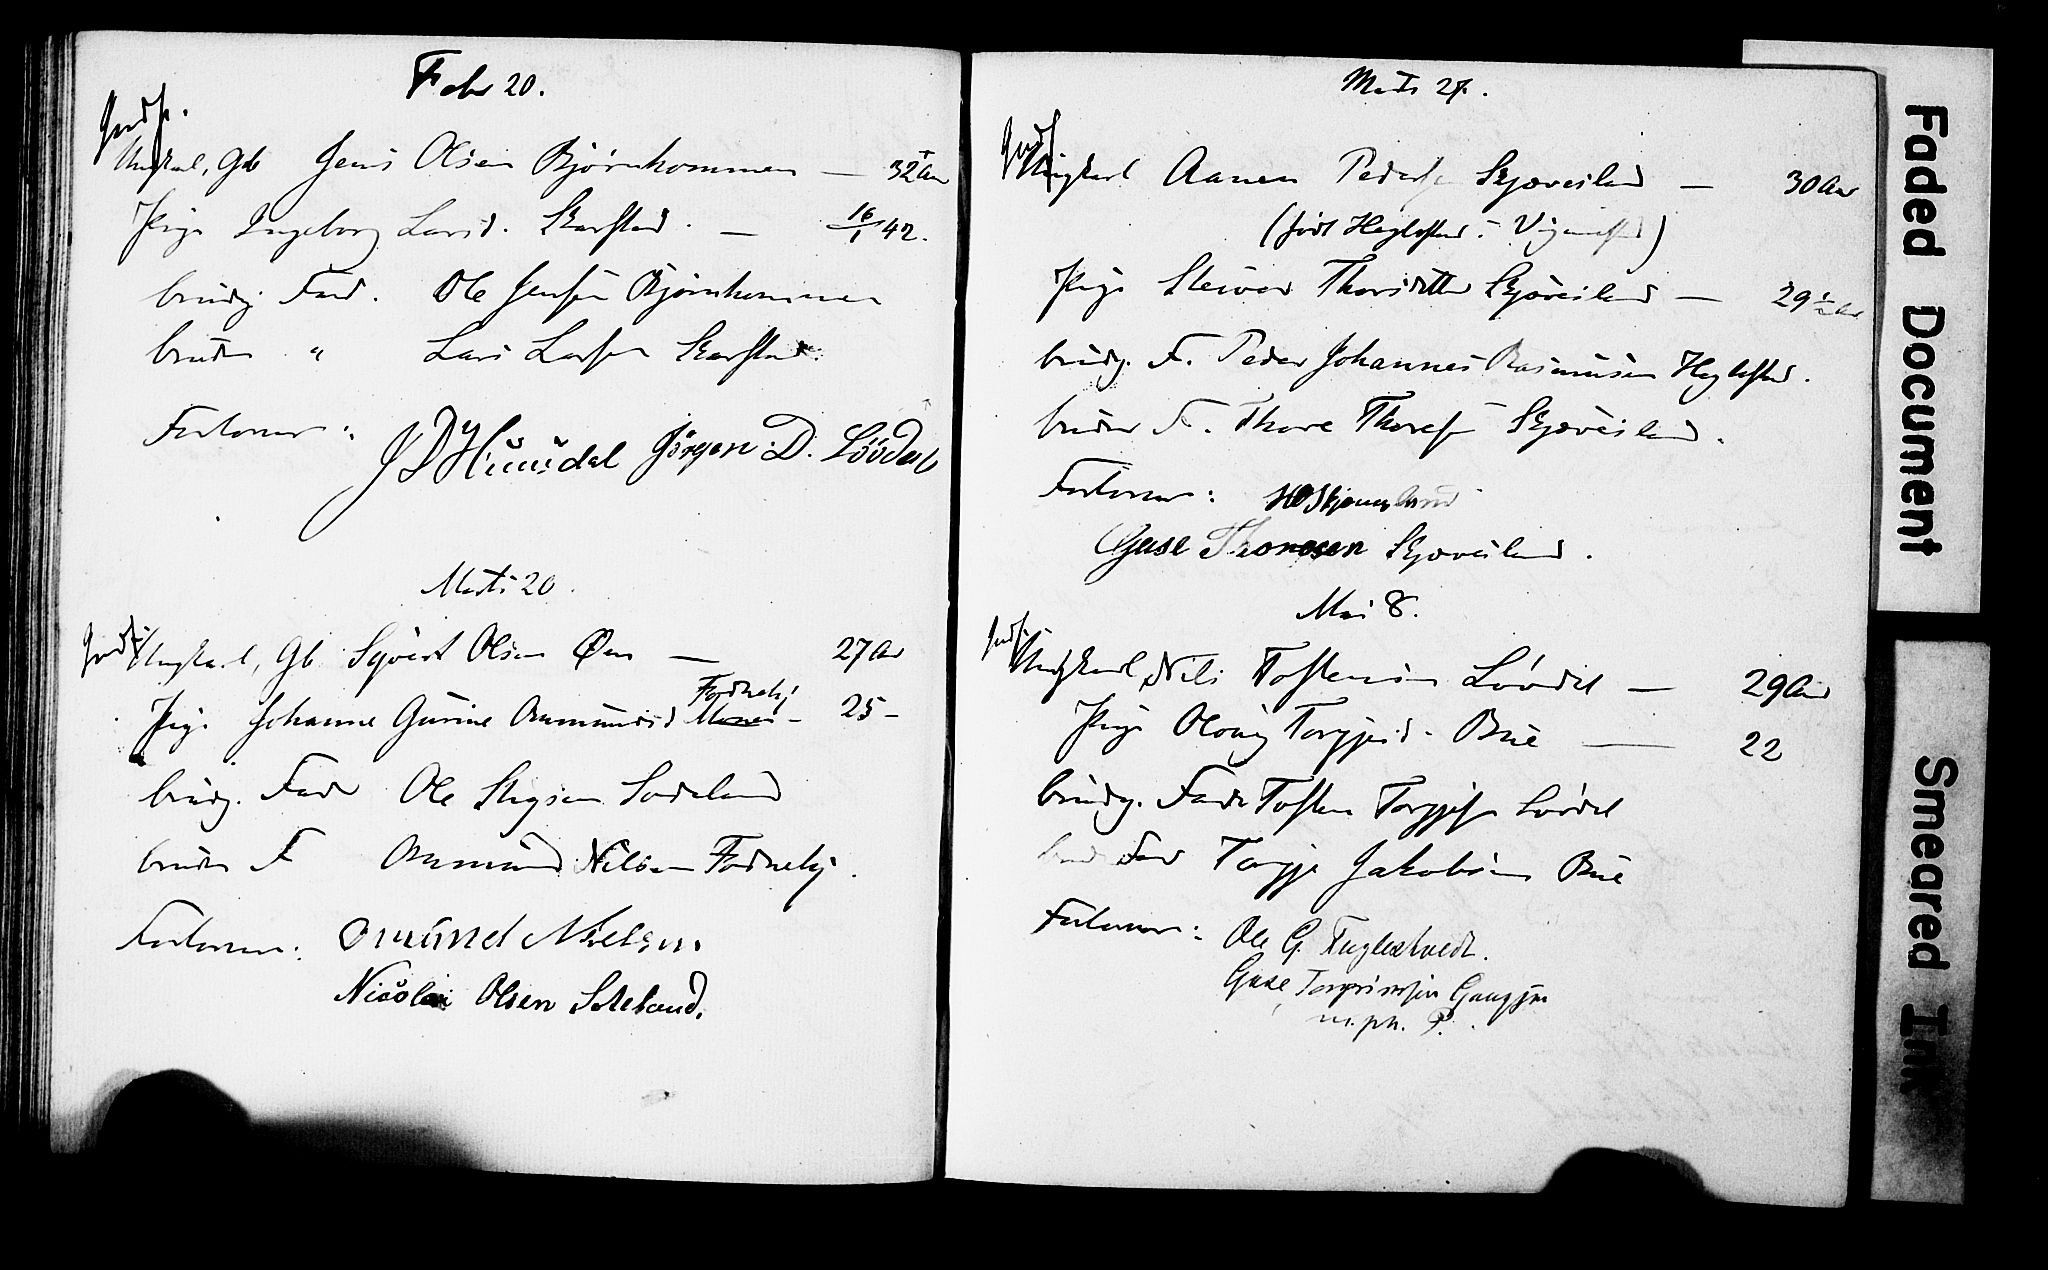 Febr 20.
Indf.
Ungkarl, Gb Jens Olsen Bjørnhommen — 32 Aar
Pige Ingeborg Larsd. Skarstad. — 16/1 42.
brudg. Fad. Ole Jensen Bjørnhommen
brudens " Lars Larsen Skarstad.
Forlovere:
Jørgen D. Lövdal
Marts 20.
Indf. Ungkarl, Gb Syvert Olsen Øen — 27 Aar
Pige Johanne Gurine Aamundsd Fodnebø 25 –
brudg. Fader Ole Stigsen Sodeland
brudens F Aamund Nilsen Fodnebø.
Forlovere: Omund Nielsen.
Nicolai Olsen Sodeland.
Marts 27.
Indf
Ungkarl Aanen Peders. Skjøveland — 30 Aar
(født Heglestad i )
Pige Steinvor Thorsdatter Skjøveland — 29 ½ Aar
brudg. F. Peder Johannes Rasmusen Heglestad.
brudens F. Thore Thoresen Skjøveland.
Forlovere:
Gjuse Thoresen Skjøveland.
Mai 8.
Indf. Ungkarl Nils Tostensen Lövdal — 29 Aar
Pige Olovig Torgjusd. Bue — 22
brudg. Fader Tosten Torgjusen Lövdal
brud Fad Torgje Jakobsen Bue
Forlovere: Ole G. Fuglestvedt.
m. p. P.
Faded Document
Smeared Ink